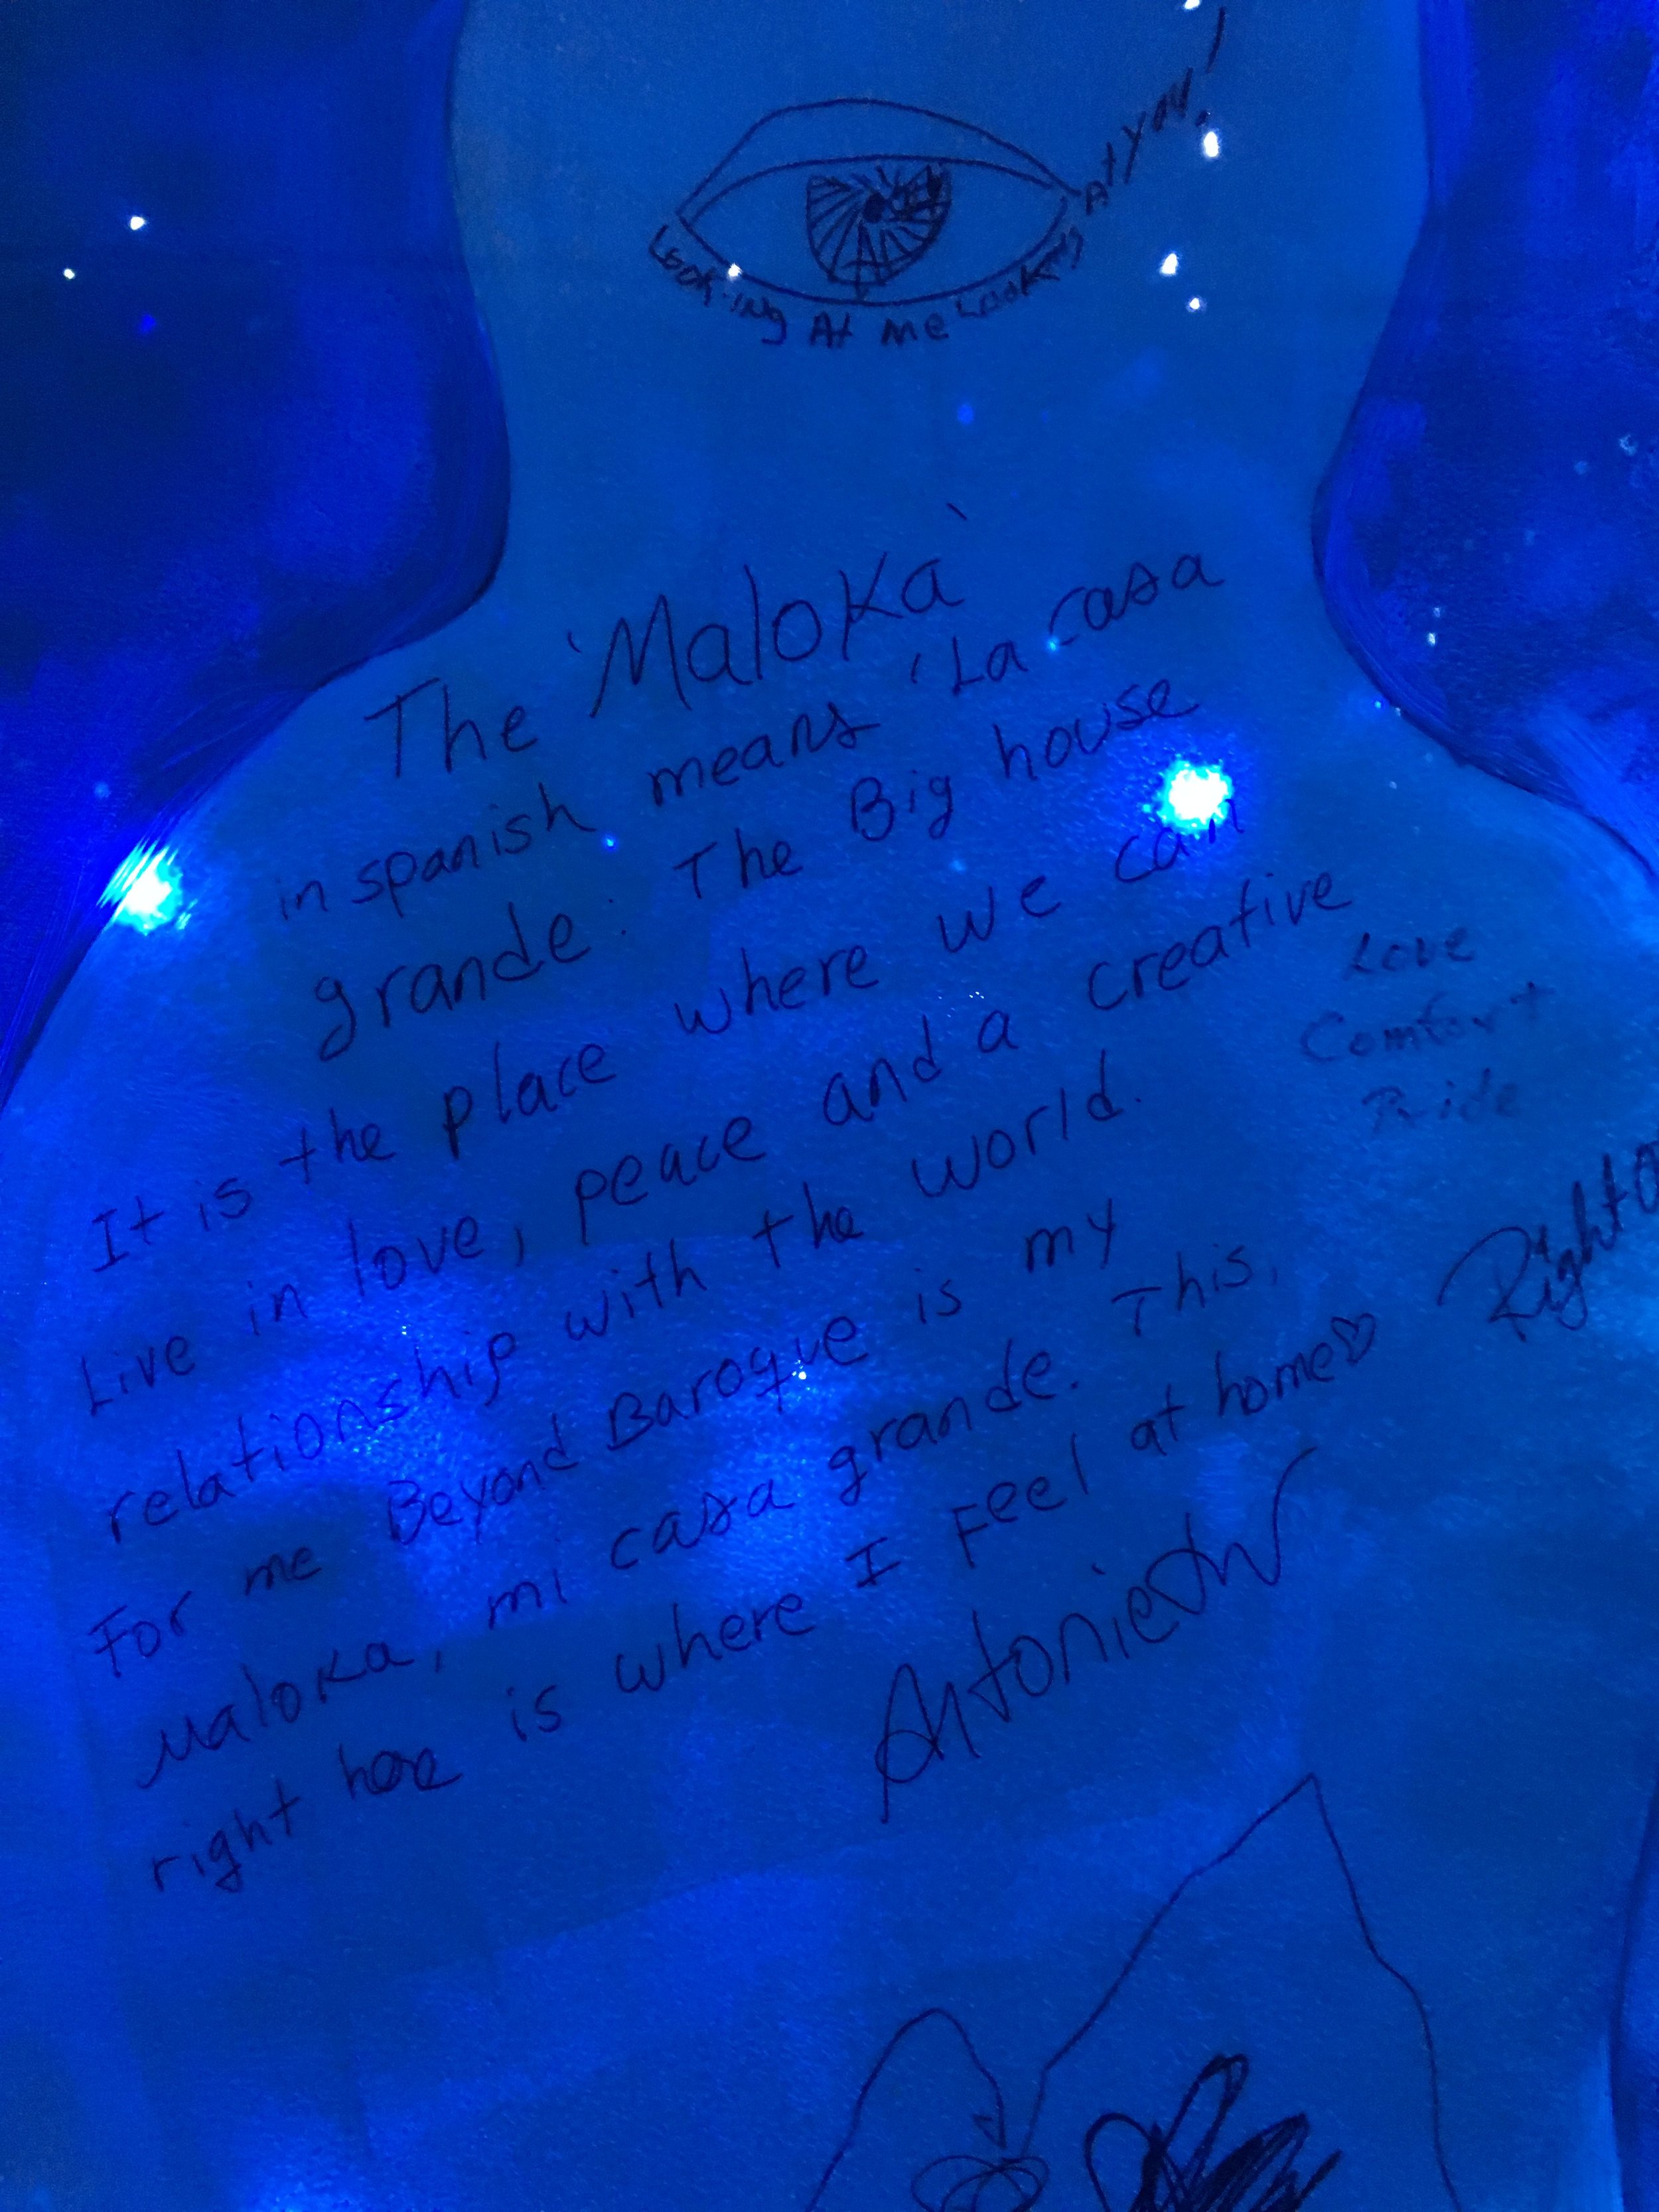 Looking At me Looking At you!
The 'Maloka'
in spanish means 'La casa
grande: The Big house
It is the place where we can
Live in love, peace and a creative
relationship with the world.
For me Beyond Baroque is my
Maloka, mi casa grande. This,
right here is where I Feel at home♡
Love
Comfort
Pride
Right